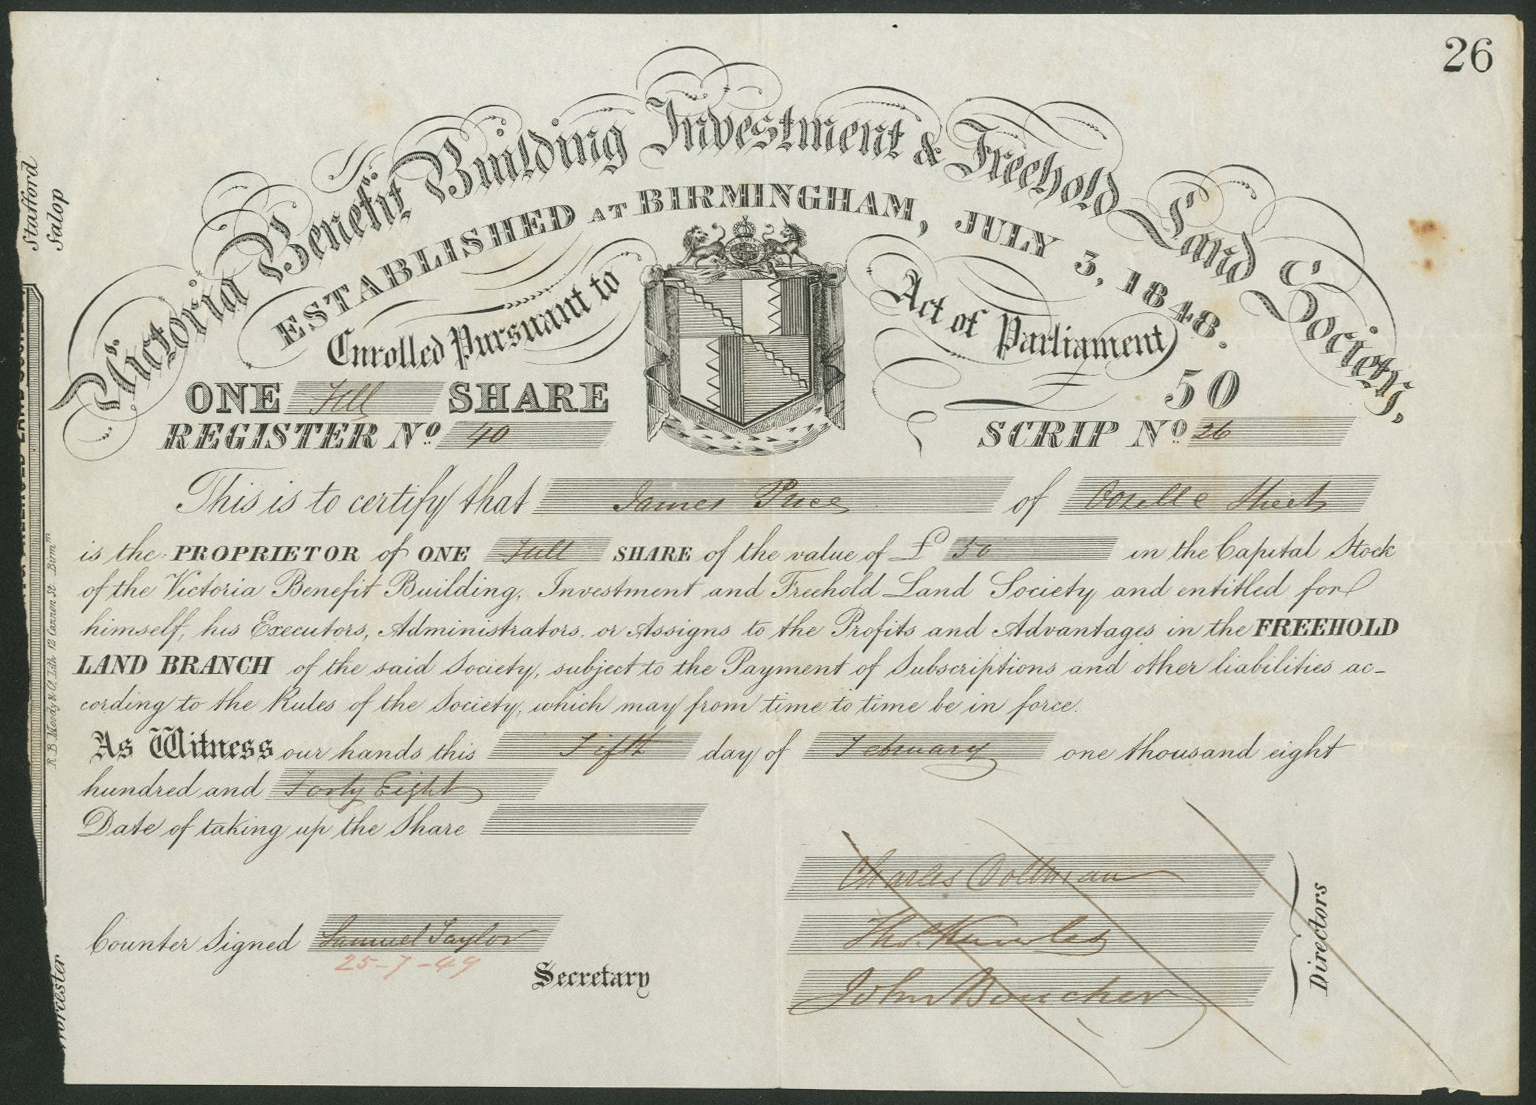 26
Victoria Benefit Building Investment & Freehold Land Society,
ESTABLISHED AT BIRMINGHAM, JULY 3, 1848.
Enrolled Pursuant to Act of Parliament
50
ONE Full SHARE
REGISTER No 40
SCRIP No 26
This is to certify that James Price of Ozelle Street
is the PROPRIETOR of ONE Full SHARE of the value of £50 in the Capital Stock
of the Victoria Benefit Building, Investment and Freehold Land Society and entitled for
himself, his Executors, Administrators, or Assigns to the Profits and Advantages in the FREEHOLD
LAND BRANCH of the said Society, subject to the Payment of Subscriptions and other liabilities ac-
cording to the Rules of the Society, which may from time to time be in force.
As Witness our hands this Fifth day of February one thousand eight
hundred and Forty Eight
Date of taking up the Share
Charles
Thos.
John Boucher
Directors
Counter Signed Samuel Taylor
25-7-49
Secretary
Stafford
Salop
Worcester
12 Cannon St. Birmm